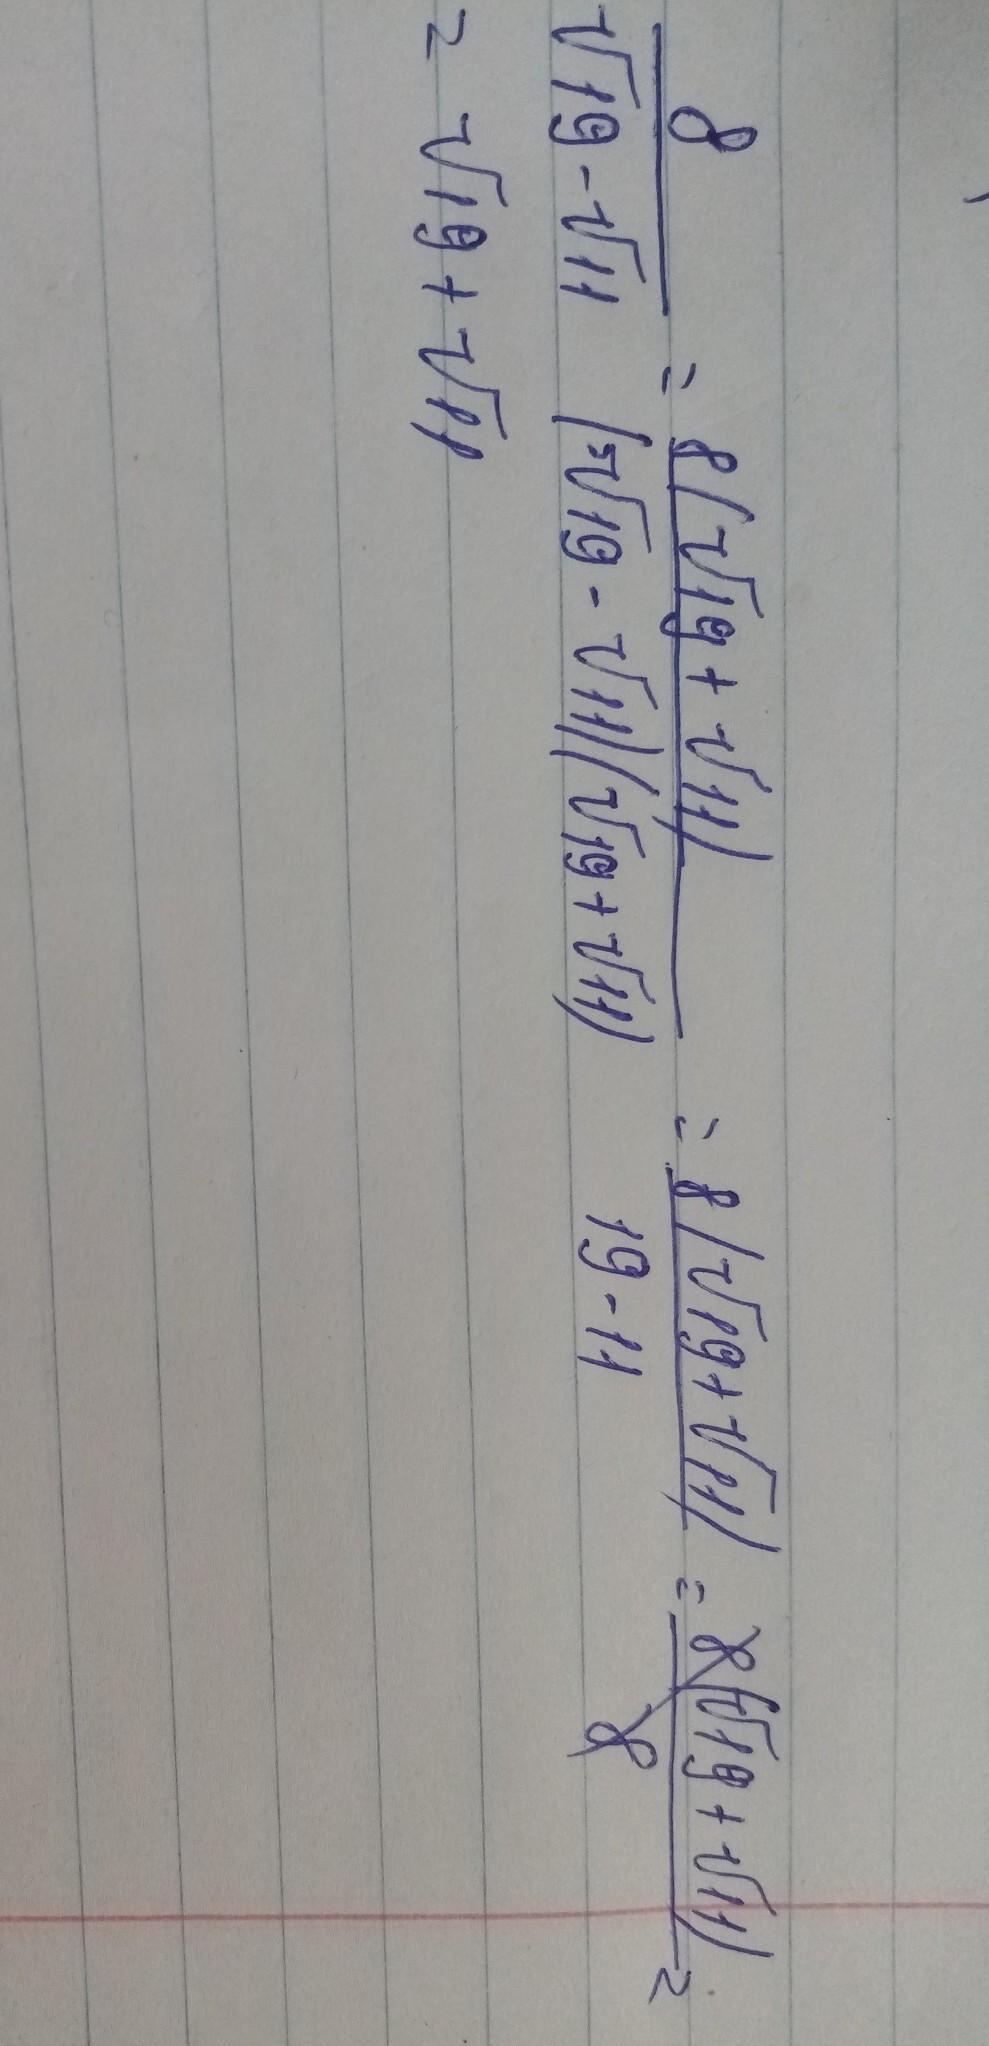 8/(√19-√11) = 8(√19+√11)/((√19-√11)(√19+√11)) = 8(√19+√11)/(19-11) = 8(√19+√11)/8 =
= √19+√11